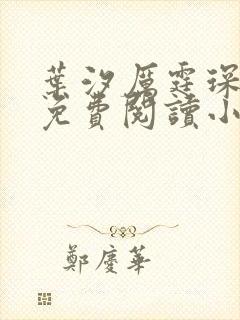 葉汐厲霆琛
免費閱讀小
鄭慶華